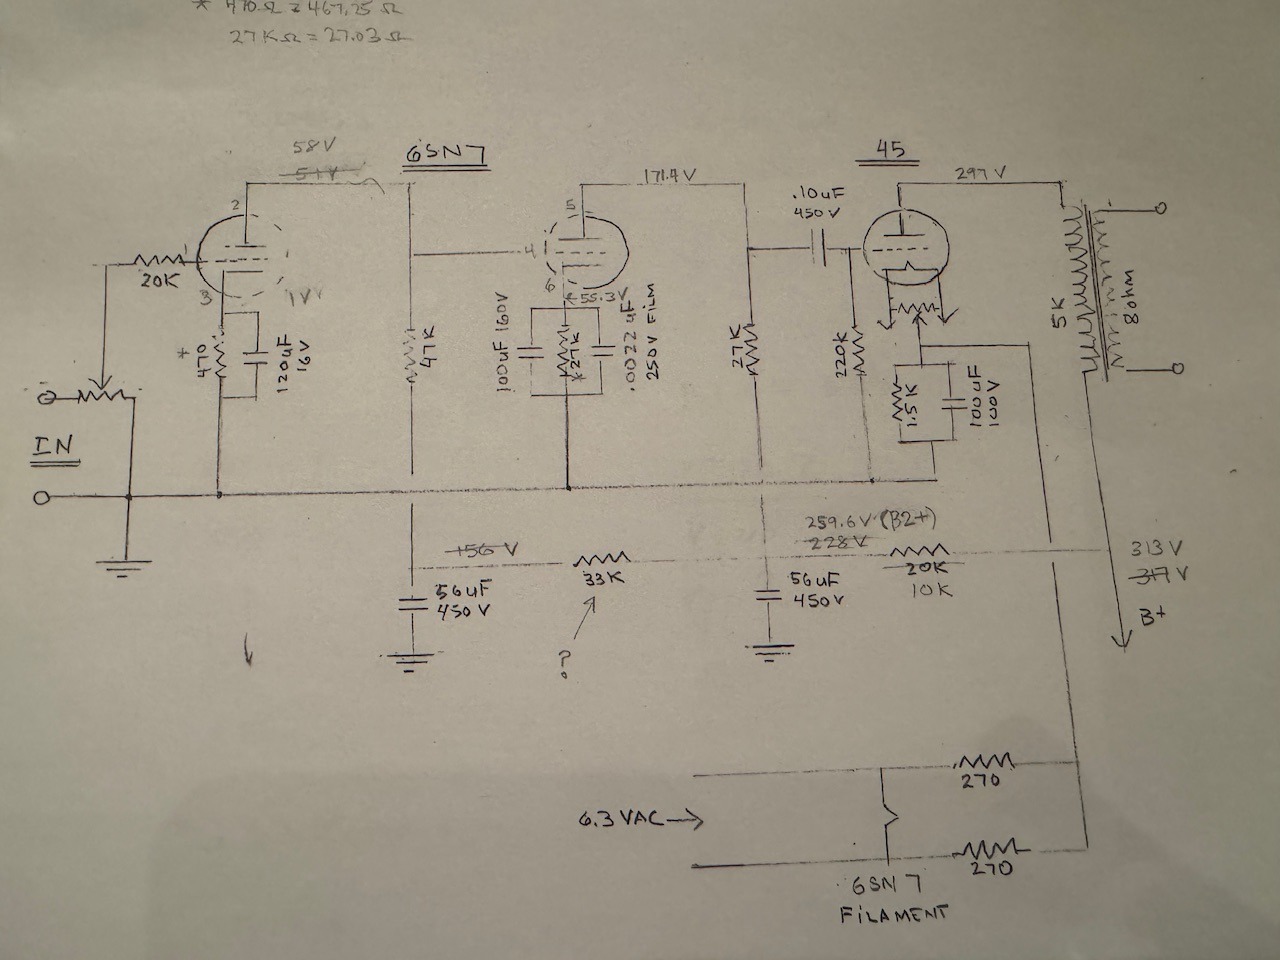 * 470Ω = 467.25Ω
27KΩ = 27.03Ω
58V
51V
6SN7
45
171.4V
297 V
.10uF
450V
2
5
1
4
20K
3
1V
6
55.3V
* 470
120uF
16V
47K
100uF 160V
*27K
.0022uF
250V FILM
27K
220K
1.5K
100uF
100V
5K
8ohm
IN
259.6V (B2+)
228V
156 V
33K
20K
10K
313V
317V
B+
56uF
450V
56uF
450V
?
270
6.3 VAC
270
6SN7
FILAMENT